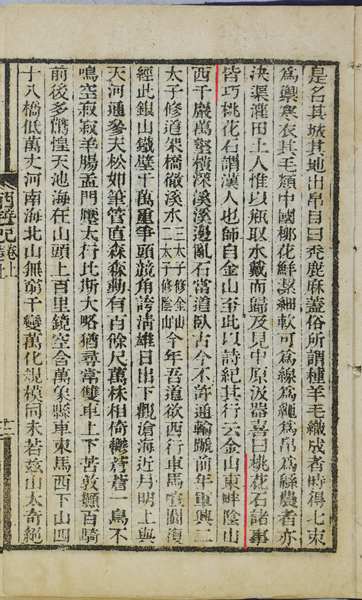 是名其城其地出帛目曰禿鹿麻蓋俗所謂種羊毛織成者時得七束
爲禦寒衣其毛類中國柳花鮮潔細軟可爲線爲繩爲帛爲綿農者亦
決渠灌田土人惟以瓶取水戴而歸及見中原汲器喜曰桃花石諸事
皆巧桃花石謂漢人也師自金山至此以詩紀其行云金山東畔陰山
西千巖萬壑攢深溪溪邊亂石當道臥古今不許通輪蹄前年軍興二
太子修道架橋徹溪水三太子修金山二太子修陰山今年吾道欲西行車馬喧闐復
經此銀山鐵壁千萬重爭頭競角誇清雄日出下觀滄海近月明上與
天河通參天松如筆管直森森動有百餘尺萬株相倚鬱蒼蒼一鳥不
鳴空寂寂羊腸孟門壓太行比斯大略猶尋常雙車上下苦敦顛百騎
前後多驚惶天池海在山頭上百里鏡空含萬象縣車束馬西下山四
十八橋低萬丈河南海北山無窮千變萬化規模同未若兹山太奇絕
西遊記卷上